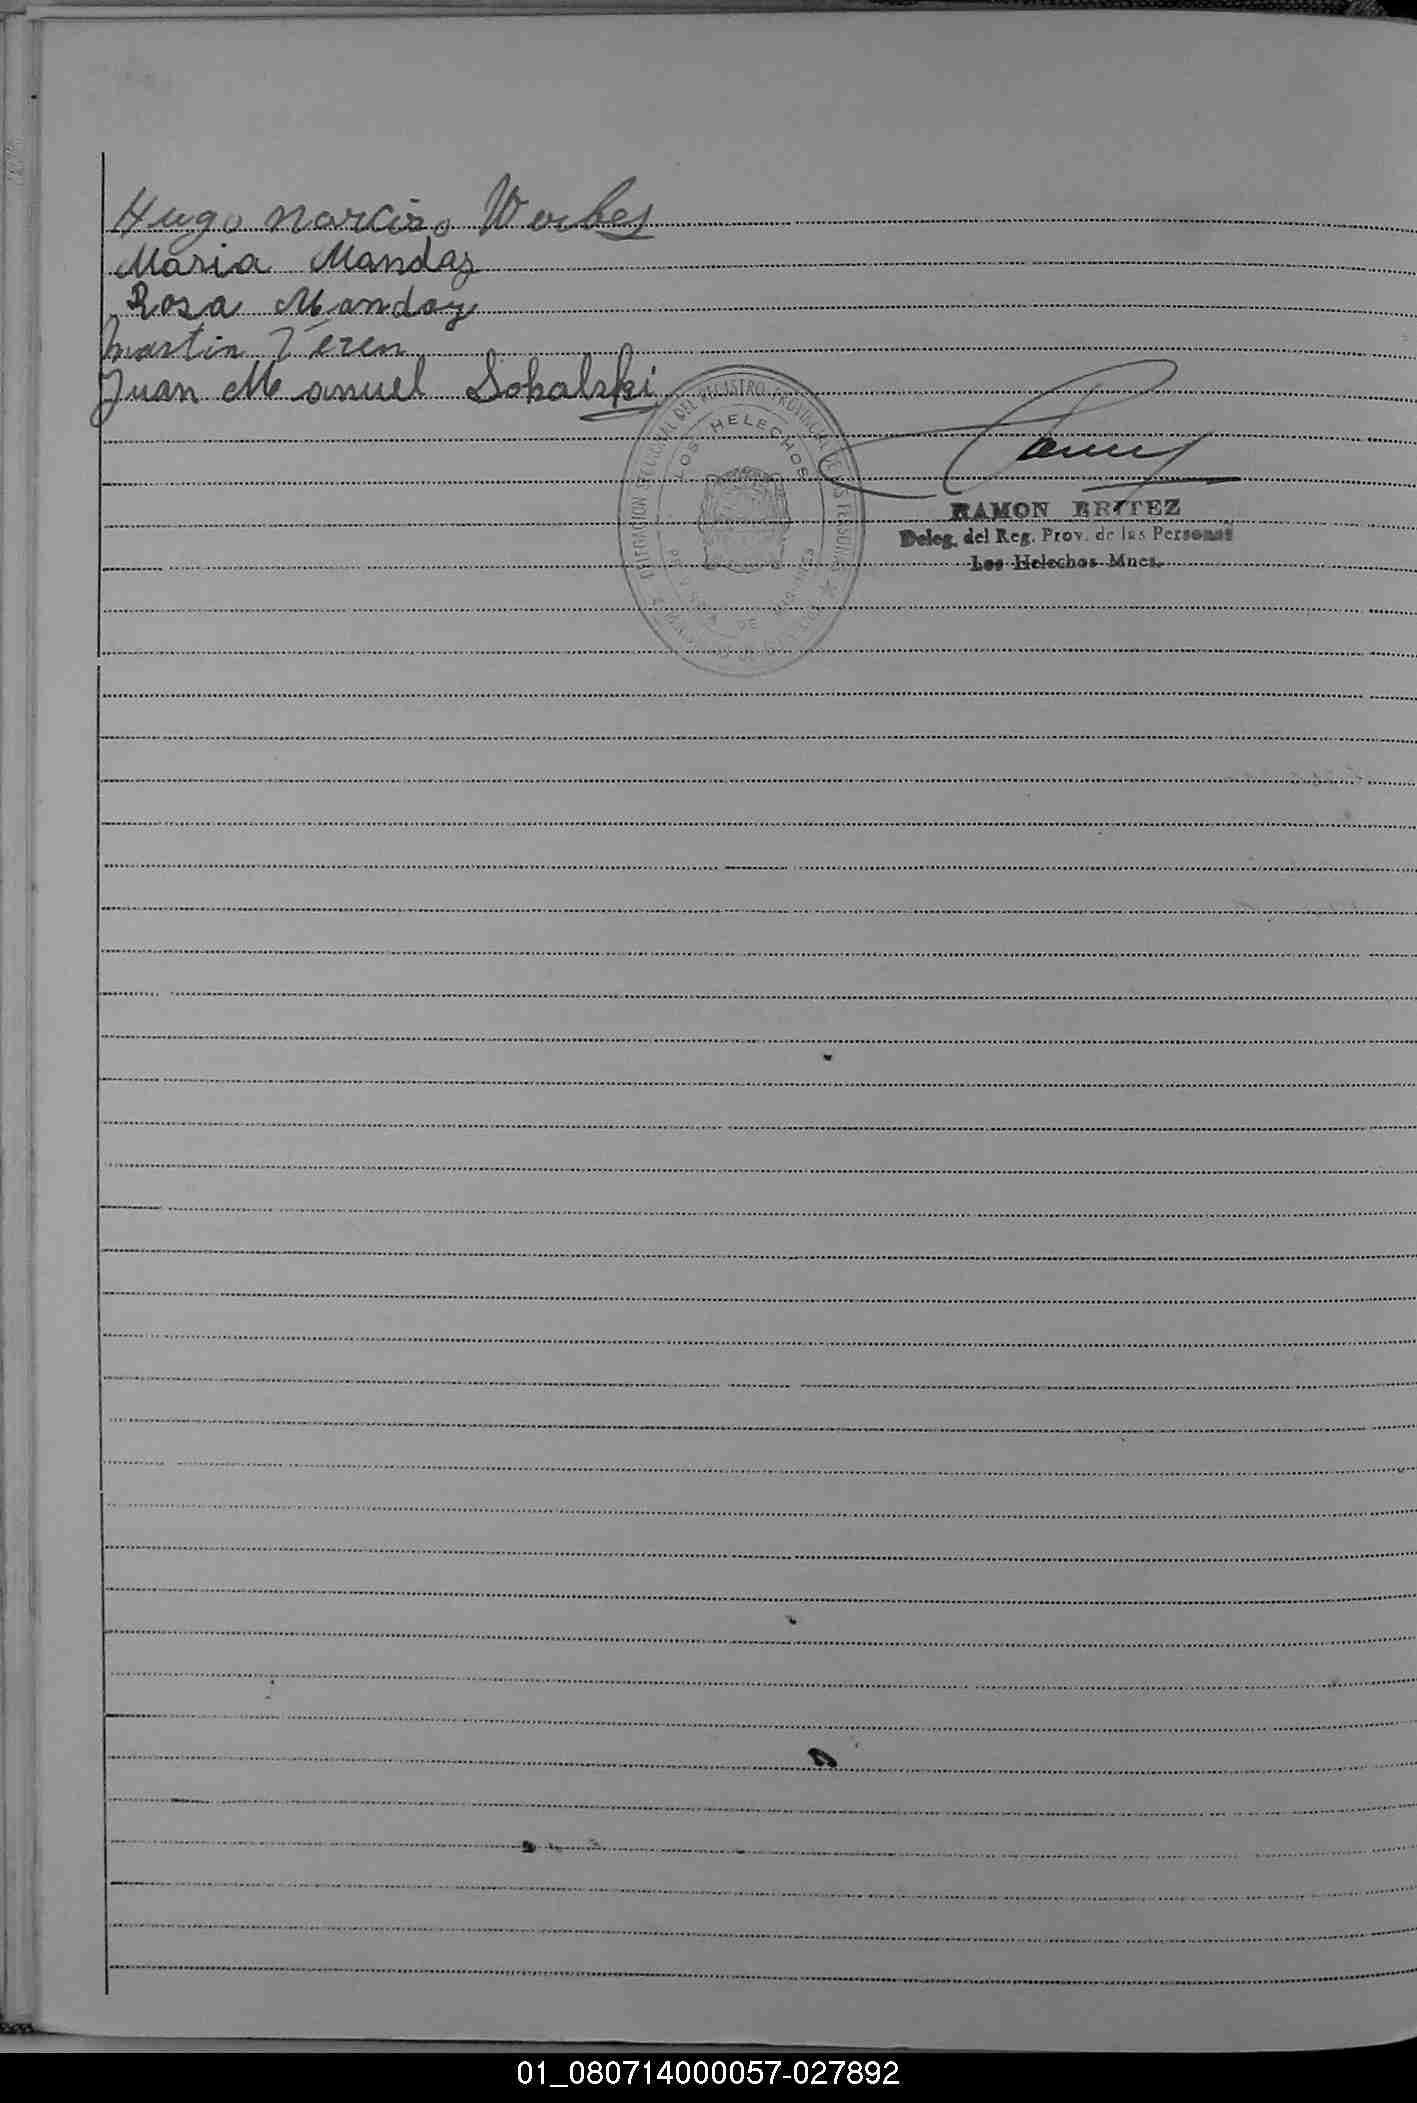 Hugo Narciso Worbes
Maria Mandaz
Rosa Mandaz
Martin Teren
Juan Manuel Sokalski
DELEGACION SECCIONAL DEL REGISTRO PROVINCIAL DE LAS PERSONAS
LOS HELECHOS
DE MISIONES
RAMON BRITEZ
Deleg. del Reg. Prov. de las Personas
Los Helechos Mnes.
01_080714000057-027892